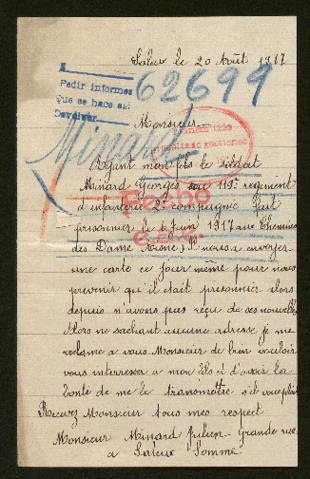 Saleux le 20 Août 1917
1
Pedir informes
que se hace así
Devolver
62699
Monsieur
Minard
Ayant mon fils le soldat
Minard Georges au 119e regiment
d'infanterie 2e compagnie fait
prisonnier le 6 juin 1917 au Chemin
des Dame Aisne Il nous a envoyer
une carte ce jour même pour nous
prevenir qu'il était prisonnier alors
depuis n'avons pas reçu de ces nouvelle
Alors ne sachant aucune adresse je me
reclame a vous Monsieur de bien vouloir
vous interresser a mon fils et d'avoir la
bonté de me le transmettre s'il vous plait
Recevez Monsieur tous mes respect
Monsieur Minard Julien Grande rue
a Saleux Somme